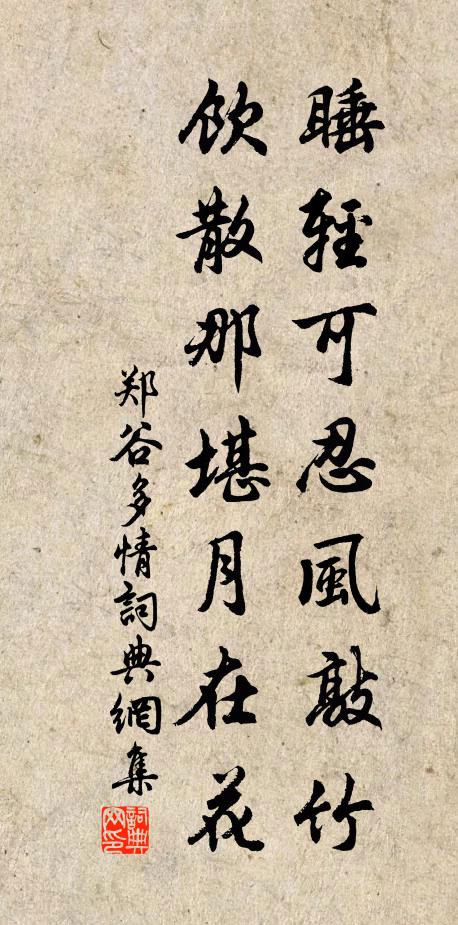 睡輕可忍風敲竹
飲散那堪月在花
郑谷多情詞典網集
詞典网印